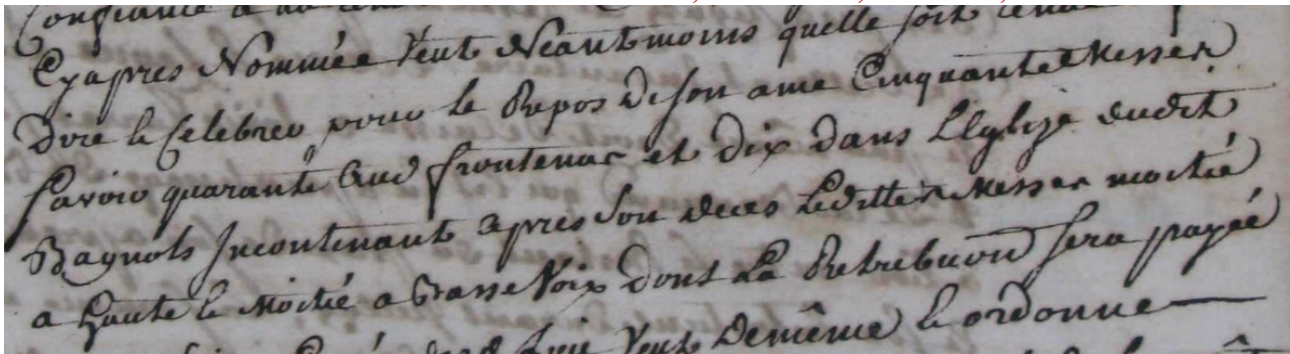 Confiance a
Cyapres Nommée veut Neantmoins quelle soit tenue
Dire & Celebrer pour le Repos de son ame Cinquante Messes
savoir quarante Aud frontenac et dix dans L'Eglize dudit
Bagnols Incontinant apres son deces Lesdittes Messes moitié
a haute & moitié a Basse Voix dont La Retribuon sera payée
veut de même & ordonne